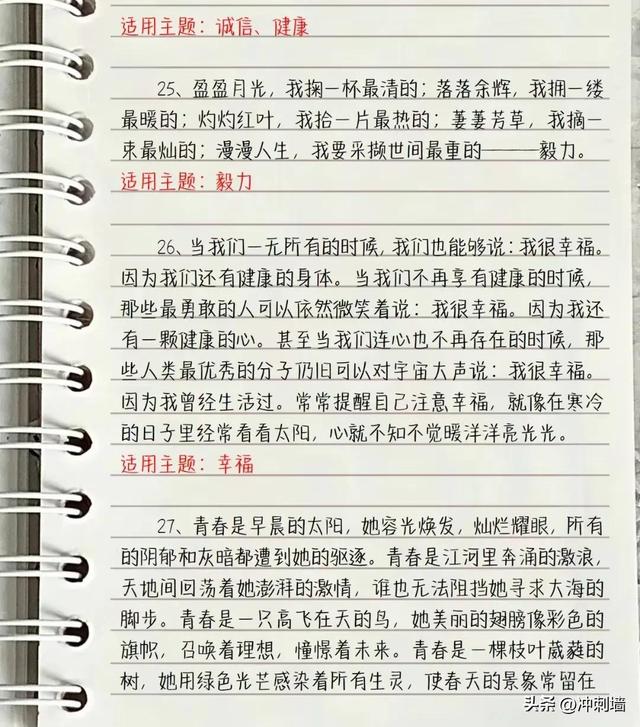 适用主题：诚信、健康
25、盈盈月光，我掬一杯最清的；落落余辉，我拥一缕
最暖的；灼灼红叶，我拾一片最热的；萋萋芳草，我摘一
束最灿的；漫漫人生，我要采撷世间最重的———毅力。
适用主题：毅力
26、当我们一无所有的时候，我们也能够说：我很幸福。
因为我们还有健康的身体。当我们不再享有健康的时候，
那些最勇敢的人可以依然微笑着说：我很幸福。因为我还
有一颗健康的心。甚至当我们连心也不再存在的时候，那
些人类最优秀的分子仍旧可以对宇宙大声说：我很幸福。
因为我曾经生活过。常常提醒自己注意幸福，就像在寒冷
的日子里经常看看太阳，心就不知不觉暖洋洋亮光光。
适用主题：幸福
27、青春是早晨的太阳，她容光焕发，灿烂耀眼，所有
的阴郁和灰暗都遭到她的驱逐。青春是江河里奔涌的激浪，
天地间回荡着她澎湃的激情，谁也无法阻挡她寻求大海的
脚步。青春是一只高飞在天的鸟，她美丽的翅膀像彩色的
旗帜，召唤着理想，憧憬着未来。青春是一棵枝叶葳蕤的
树，她用绿色光芒感染着所有生灵，使春天的景象常留在
头条 @冲刺墙